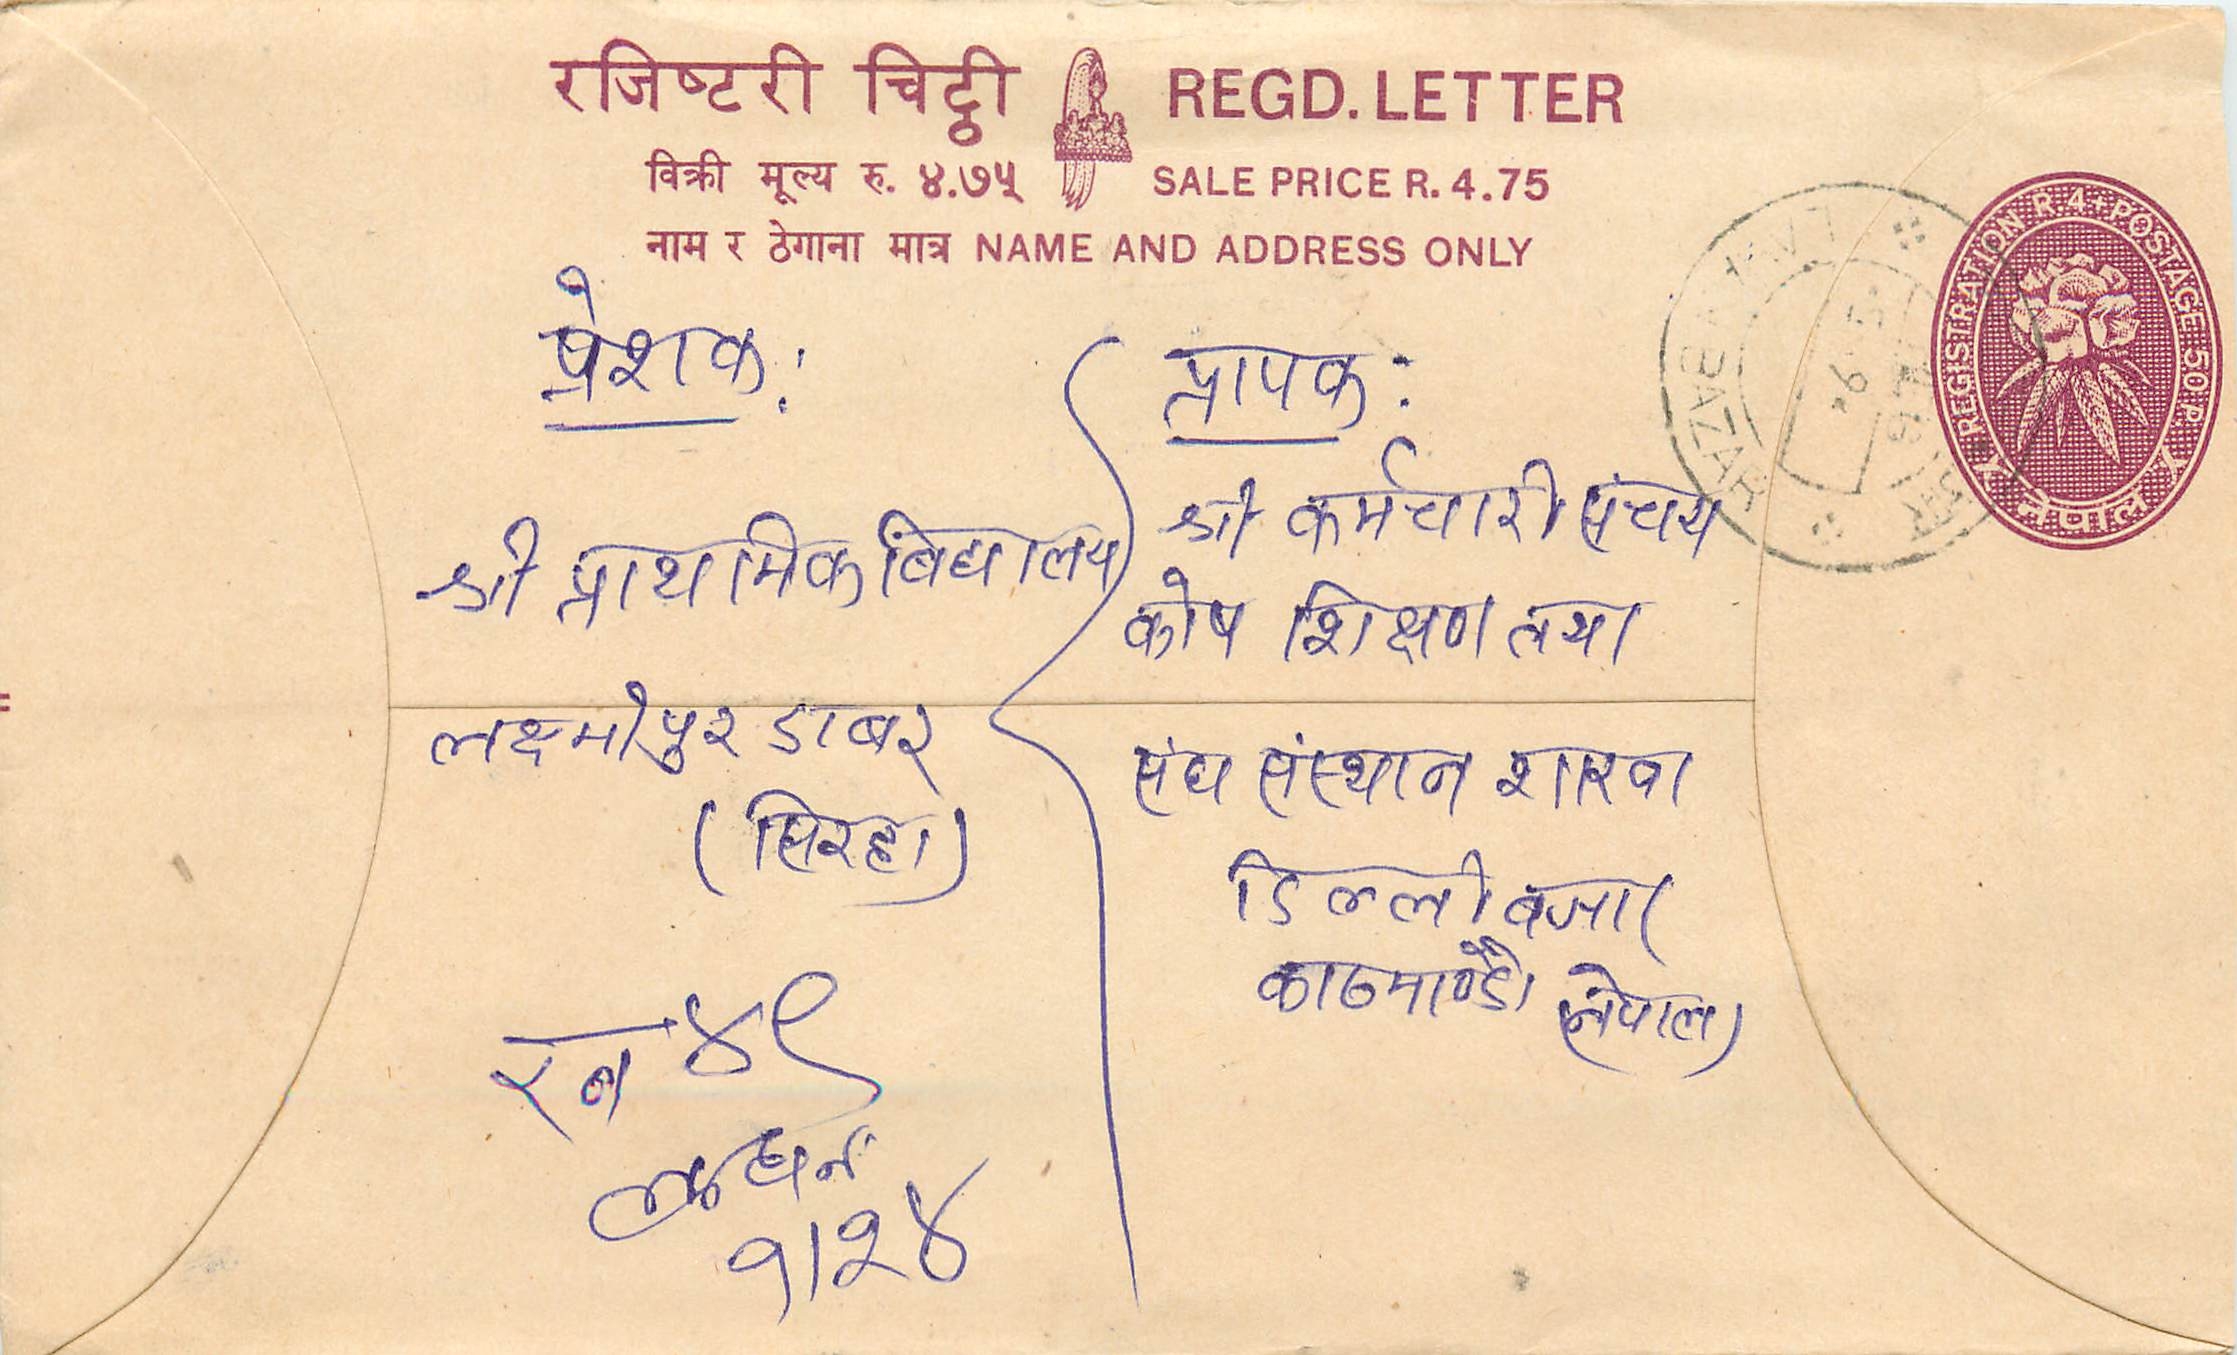 रजिष्टरी चिट्ठी REGD. LETTER
विक्री मूल्य रु. ४.७५ SALE PRICE R. 4.75
नाम र ठेगाना मात्र NAME AND ADDRESS ONLY
REGISTRATION R.4+POSTAGE 50 P.
नेपाल
BAZAR
प्रेशक:
श्री प्राथमिक विद्यालय
लक्ष्मीपुर डाबर
(सिरहा)
प्रापक:
श्री कर्मचारी संचय
कोष शिक्षण तथा
संघ संस्थान शाखा
डिल्ली बजार
काठमाण्डौ (नेपाल)
४९
१।२४